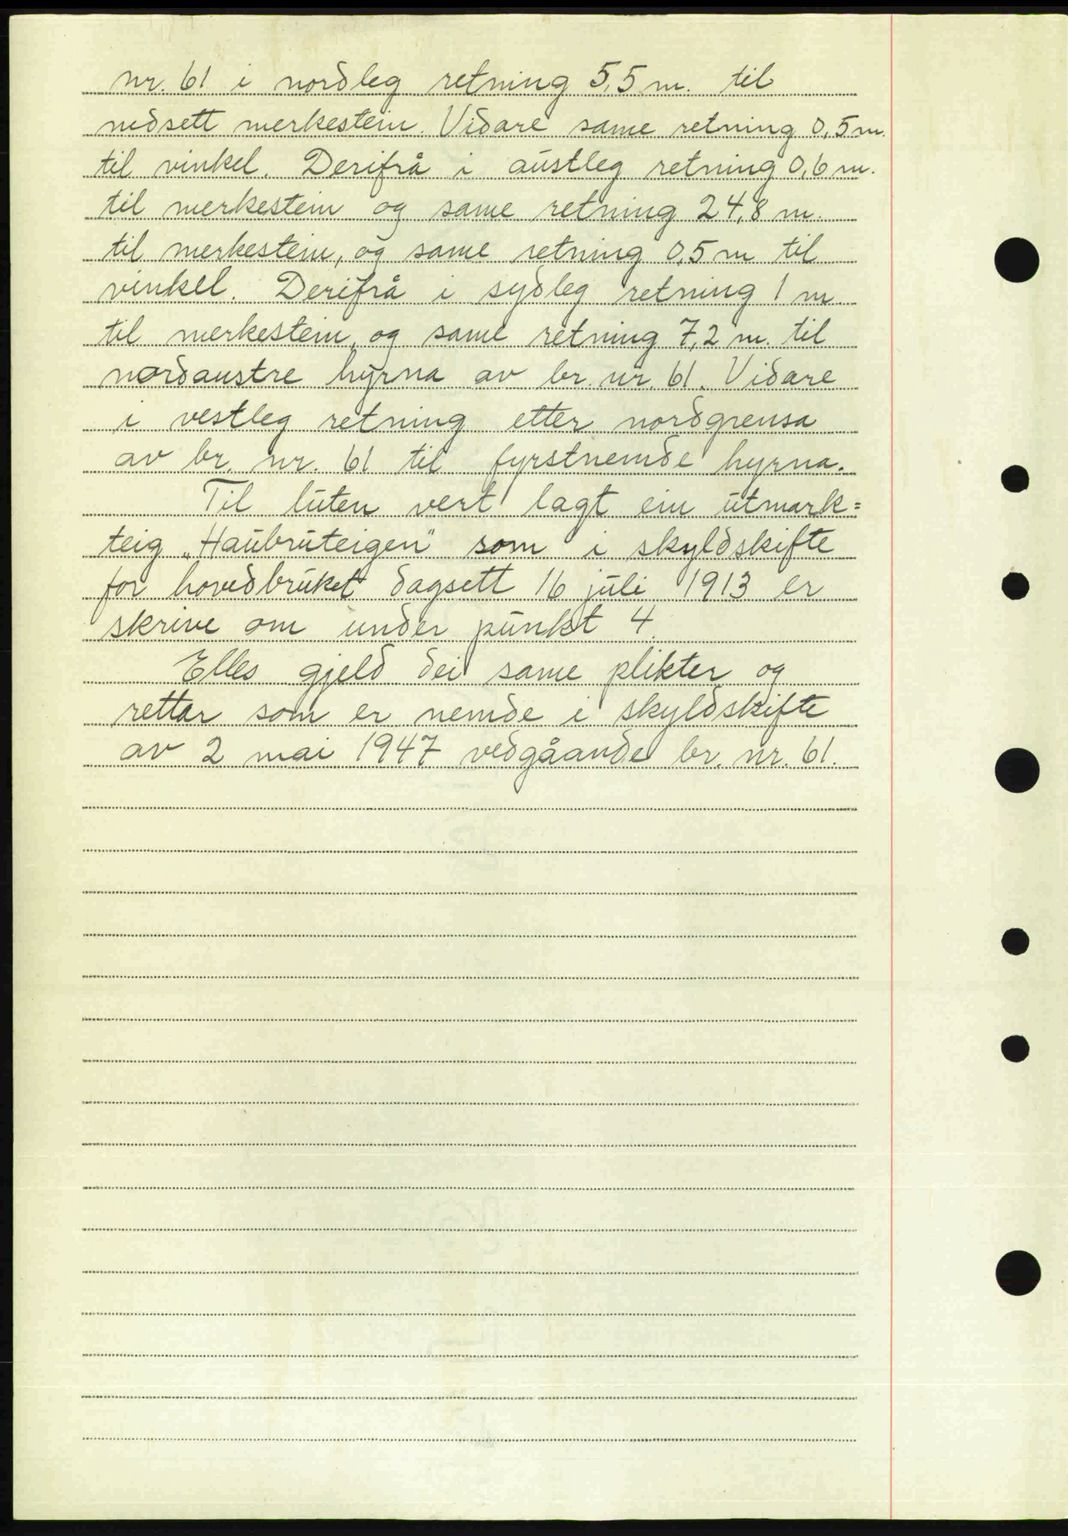 nr. 61 i nordleg retning 5,5 m. til
nedsett merkestein. Vidare same retning 0,5 m.
til vinkel. Derifrå i austleg retning 0,6 m.
til merkestein og same retning 24,8 m.
til merkestein, og same retning 0,5 m til
vinkel. Derifrå i sydleg retning 1 m
til merkestein, og same retning 7,2 m. til
nordaustre hyrna av br. nr. 61. Vidare
i vestleg retning etter nordgrensa
av br. nr. 61 til fyrstnemde hyrna.
Til luten vert lagt ein utmark=
teig „Haubruteigen" som i skyldskifte
for hovedbruket dagsett 16 juli 1913 er
skrive om under punkt 4.
Elles gjeld dei same plikter og
rettar som er nemde i skyldskifte
av 2 mai 1947 vedgåande br. nr. 61.